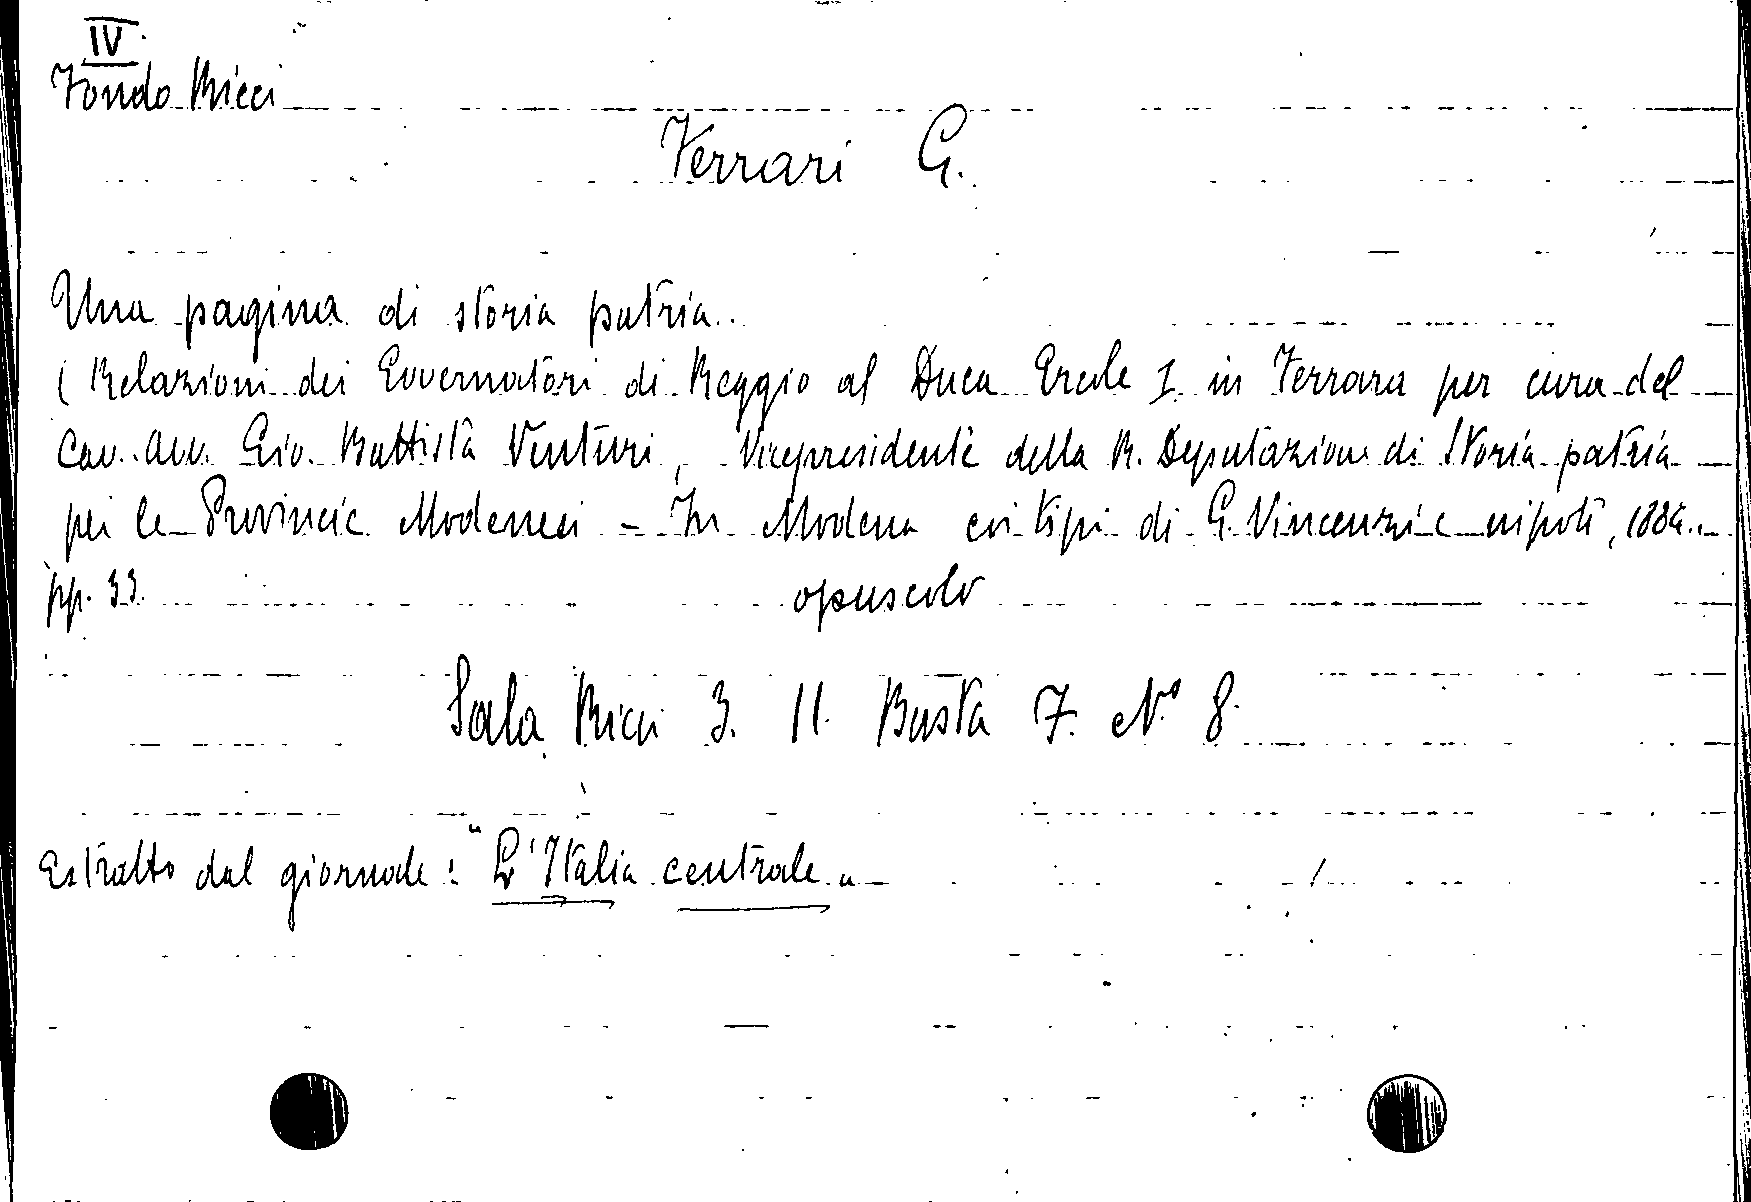 IV
Fondo Ricci
Ferrari G.
Una pagina di storia patria.
( Relazioni dei Governatori di Reggio al Duca Ercole I in Ferrara per cura del
Cav. Avv. Gio. Battista Venturi, Vicepresidente della R. Deputazione di Storia patria
per le Provincie Modenesi - In Modena coi tipi di G. Vincenzi e nipoti, 1884.
pp. 33. opuscolo
Sala Ricci 3. 11. Busta 7. N° 8.
Estratto dal giornale: "L'Italia centrale"